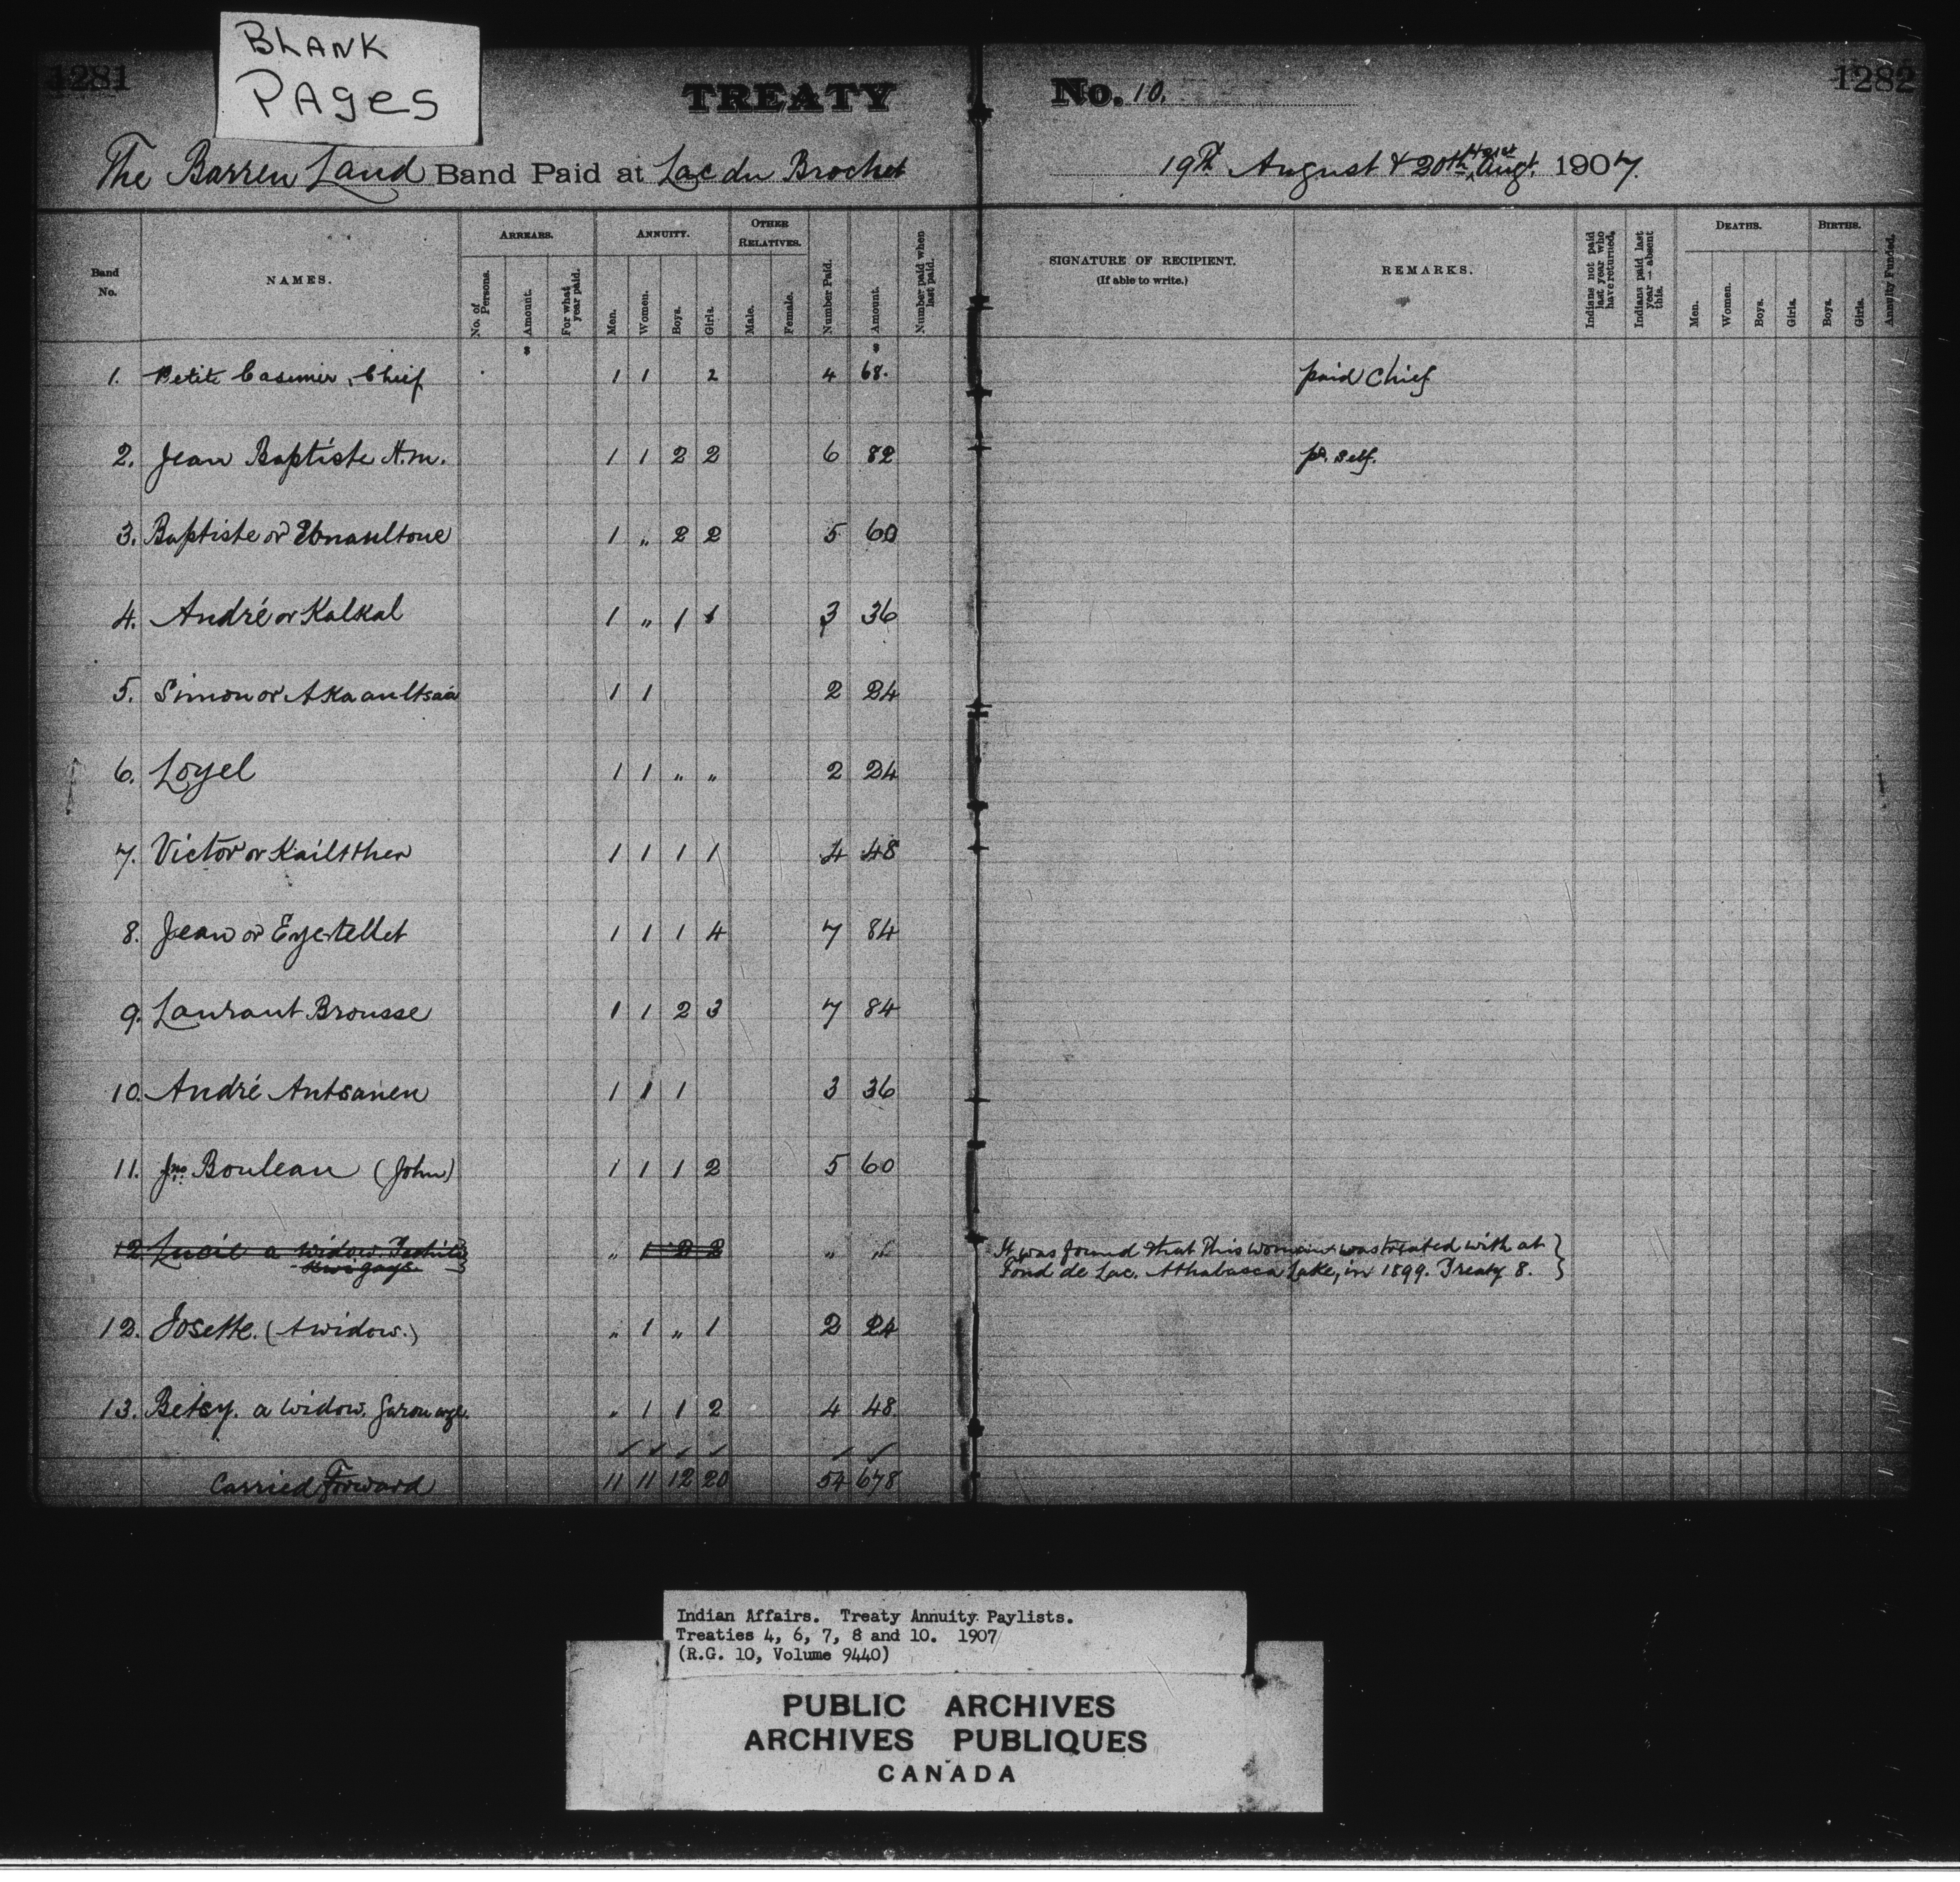 BLANK
PAges
1281
TREATY
No. 10.
1282
The Barren Land Band Paid at Lac du Brochet
19th August & 20th & 21st Aug. 1907.
Band No.
NAMES.
ARREARS.
No. of Persons.
Amount.
For what year paid.
ANNUITY.
Men.
Women.
Boys.
Girls.
OTHER RELATIVES.
Male.
Female.
Number Paid.
Amount.
Number paid when last paid.
SIGNATURE OF RECIPIENT.
(If able to write.)
REMARKS.
Indians not paid last year who have returned.
Indians paid last year — absent this.
DEATHS.
Men.
Women.
Boys.
Girls.
BIRTHS.
Boys.
Girls.
Annuity Funded.
$ $
1. Petit Casimir, Chief 1 1 2 4 68. paid Chief
2. Jean Baptiste H.m. 1 1 2 2 6 82 pd. self.
3. Baptiste or 1 " 2 2 5 60
4. André or Kalkal 1 " 1 1 3 36
5. Simon or Akaaultsaa 1 1 2 24
6. Loyel 1 1 " " 2 24
7. Victor or Kailtther 1 1 1 1 4 48
8. Jean or Eyetellet 1 1 1 4 7 84
9. Laurant Brousse 1 1 2 3 7 84
10. André Antsanen 1 1 1 3 36
11. Jno. Bouleau (John) 1 1 1 2 5 60
12 Lucie a widow. " 1 2 2 " " It was found that this woman was treated with at
Fond de Lac. Athabasca Lake, in 1899. Treaty 8.
12. Josette. (A widow.) " 1 " 1 2 24
13. Betsy. a widow. " 1 1 2 4 48
Carried Forward 11 11 12 20 54 678
Indian Affairs. Treaty Annuity Paylists.
Treaties 4, 6, 7, 8 and 10. 1907
(R.G. 10, Volume 9440)
PUBLIC ARCHIVES
ARCHIVES PUBLIQUES
CANADA